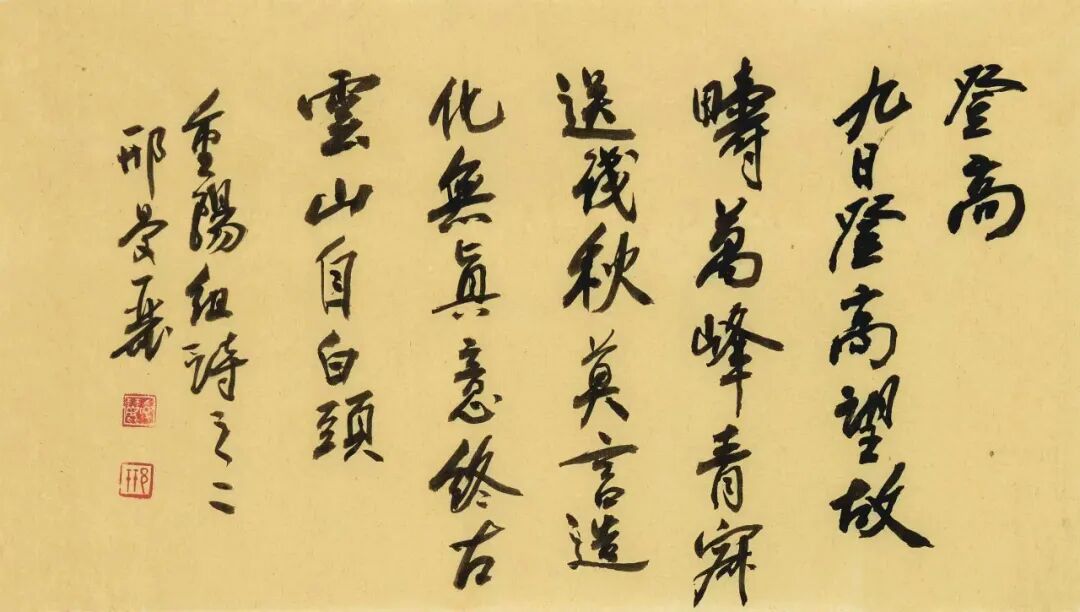 登高
九日登高望故
疇萬峰青寐
送殘秋莫言造
化無眞意終古
雲山自白頭
重陽組詩之二
邢曼麗
邢